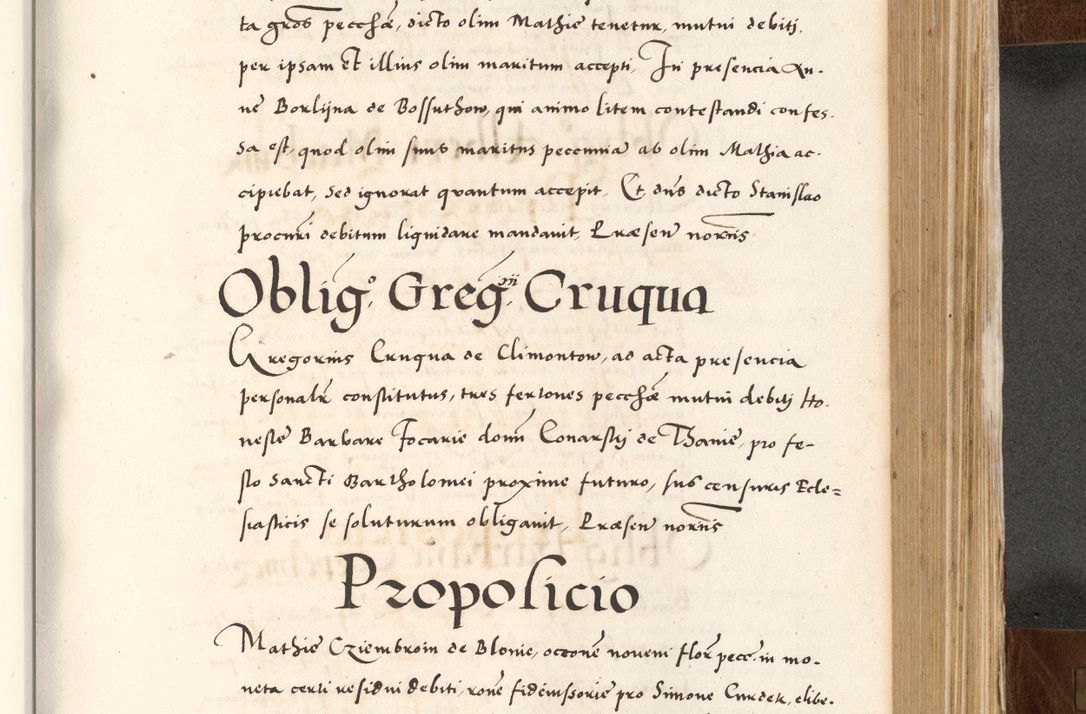 ta gros pecchae, dicto olim Mathie tenetur, mutui debiti,
per ipsam et illius olim maritum accepti, In presencia An-
ne Borlijna de Bossuthow, qui animo litem contestandi confes-
sa est, quod olim suus maritus pecunia ab olim Mathia ac-
cipiebat, sed ignorat quantum accepit. Et dns dicto Stanislao
procuri debitum liquidare mandavit, Præsen noriis
Oblig.o Greg.rii Cruqua
Gregorius Cruqua de Climontow, ad acta presencia
personalr constitutus, tres fertones pecchae mutui debiti Ho-
neste Barbare Focarie domi Conarskij de Thanie, pro fe-
sto Sancti Bartholomei proxime futuro, sub censuris Ecle=
siasticis se soluturum obligavit, Præsen noriis
Propolicio
Mathie Cziembroin de Blonie, occone noveni flor pecc. in mo-
neta certi residui debiti, rone fideiussorie pro Simone Curdek, elibe-